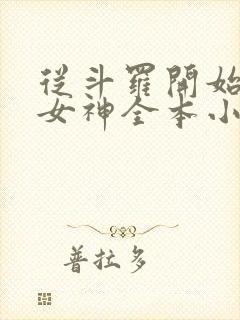 從斗羅開始
女神全本小
普拉多